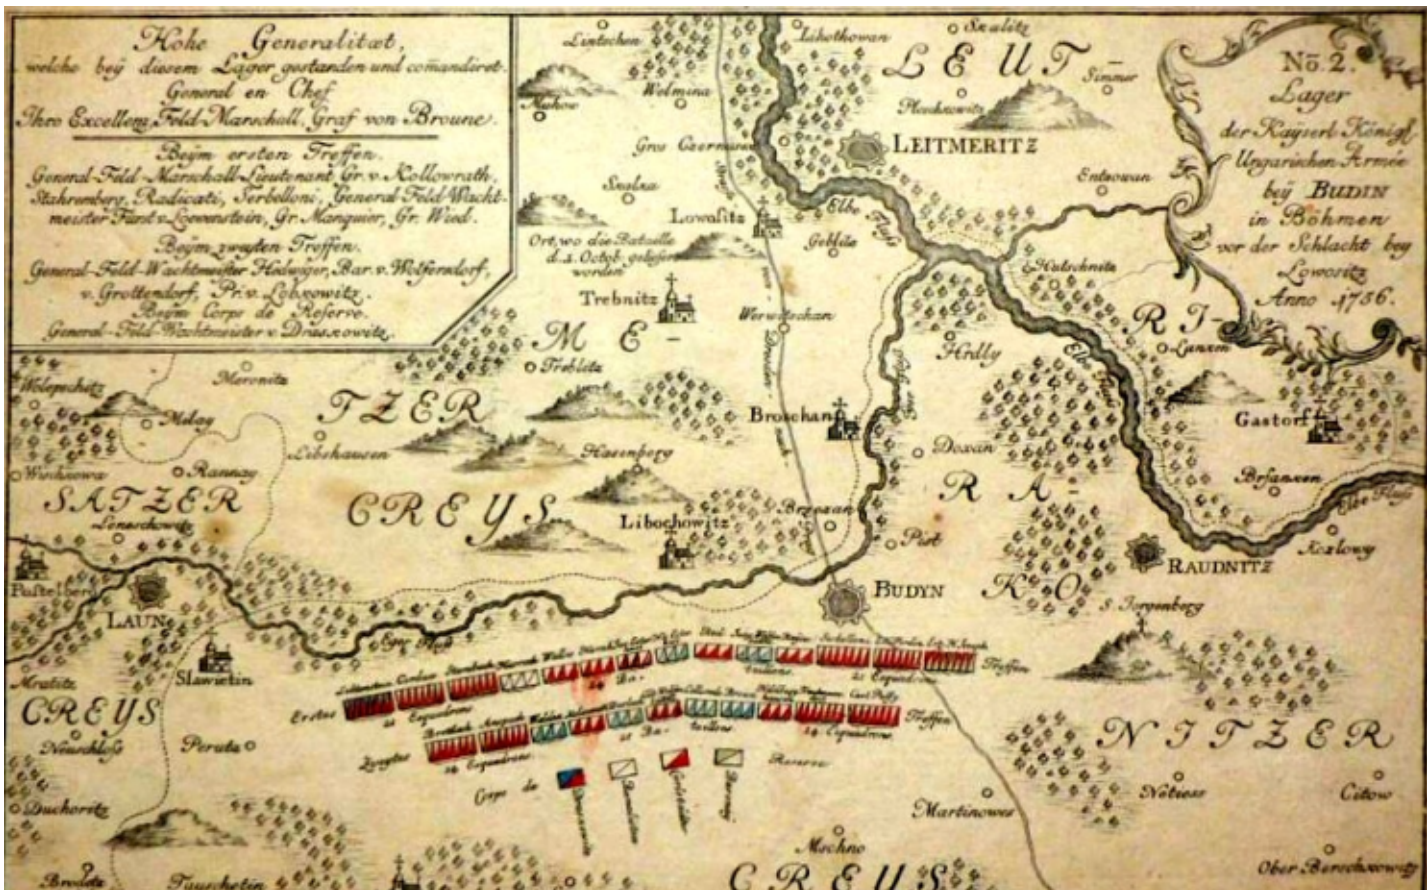 Hohe Generalitæt,
welche bey diesem Lager gestanden und com̄andiret.
General en Chef
Ihro Excellenz, Feld-Marschall, Graf von Broune.
Beym ersten Treffen.
General-Feld-Marschall-Lieutenant, Gr. v. Kollowrath,
Stahremberg, Radicati, Serbelloni, General-Feld-Wacht-
meister Fürst v. Loewenstein, Gr. Marquier, Gr. Wied.
Beym zwyten Treffen.
General-Feld-Wachtmeister Hedwiger, Bar. v. Wolfersdorf,
v. Grottendorf, Pr. v. Lobkowitz.
Beym Corps de Reserve.
General-Feld-Wachtmeister v. Draskowitz.
Nō. 2.
Lager
der Kayserl. Königl.
Ungarischen Armée
bey BUDIN
in Böhmen
vor der Schlacht bey
Lowositz
Anno 1756.
Lintschen
Lihothowan
Skalitz
LEUT-
Simmer
Muhow
Welmina
Pleschnowitz
Gros Czernosec
LEITMERITZ
Entzowan
Szalza
Lowositz
Elbe Fluss
Ort, wo die Bataille
d. 1. Octob. geliefert
worden
Trebnitz
Hutschnitz
Werwitschan
ME-
RI-
Hrdly
Lunzen
Wolepschitz
Meronitz
Treblitz
Elbe Fluss
Milay
TZER
Broschan
Gastorf
Libshausen
Hasenberg
Doxan
Wischzowa
Rannay
SATZER
CREYS
RA-
Brsanzen
Elbe Fluss
Leneschowitz
Libochowitz
Brzozan
Pist
Kozlowy
RAUDNITZ
Pustelberg
BUDYN
KO-
LAUN
S. Jorgenberg
Eger Fluss
Slawietin
Mratitz
Erstes
Treffen
21 Esquadrons
CREYS
Neuschloss
Peruta
Zweytes
Treffen
24 Esquadrons
NITZER
Corps de
Reserve
Duchoritz
Martinowes
Netiess
Citow
Mschno
Brodetz
Tauschetin
CREYS
Ober Berschkowitz